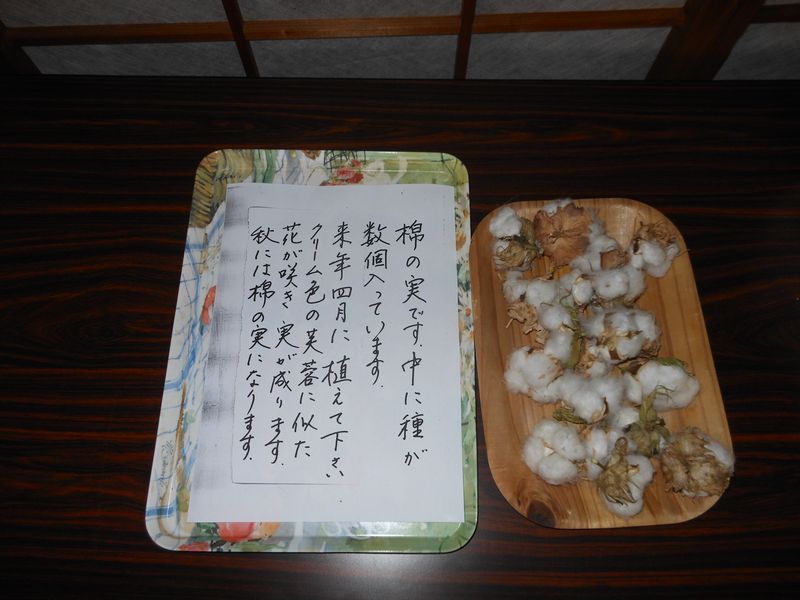 棉の実です。中に種が
数個入っています。
来年四月に植えて下さい.
クリーム色の芙蓉に似た
花が咲き 実が成ります。
秋には棉の実になります。